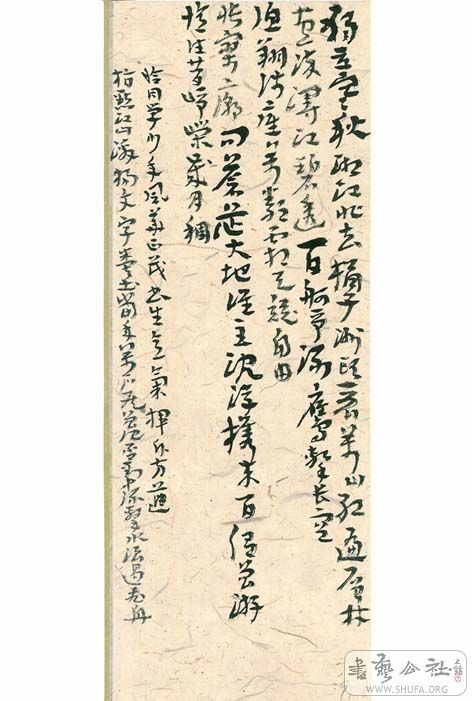 獨立寒秋湘江北去橘子洲頭看萬山红遍層林
盡染漫江碧透百舸争流鷹擊長空
魚翔淺底萬類霜天競自由
悵寥廓问蒼茫大地誰主沉浮攜来百侣曾游
憶往昔崢嶸歲月稠
恰同学少年風華正茂书生意氣揮斥方遒
指點江山激揚文字糞土當年萬户侯曾記否到中流擊水浪遏飛舟
書藝公社
WWW.SHUFA.ORG